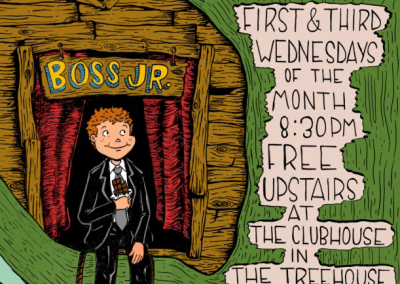 BOSS JR.
FIRST & THIRD
WEDNESDAYS
OF THE
MONTH
8:30PM
FREE
UPSTAIRS
AT
THE CLUBHOUSE
IN
THE TREEHOUSE